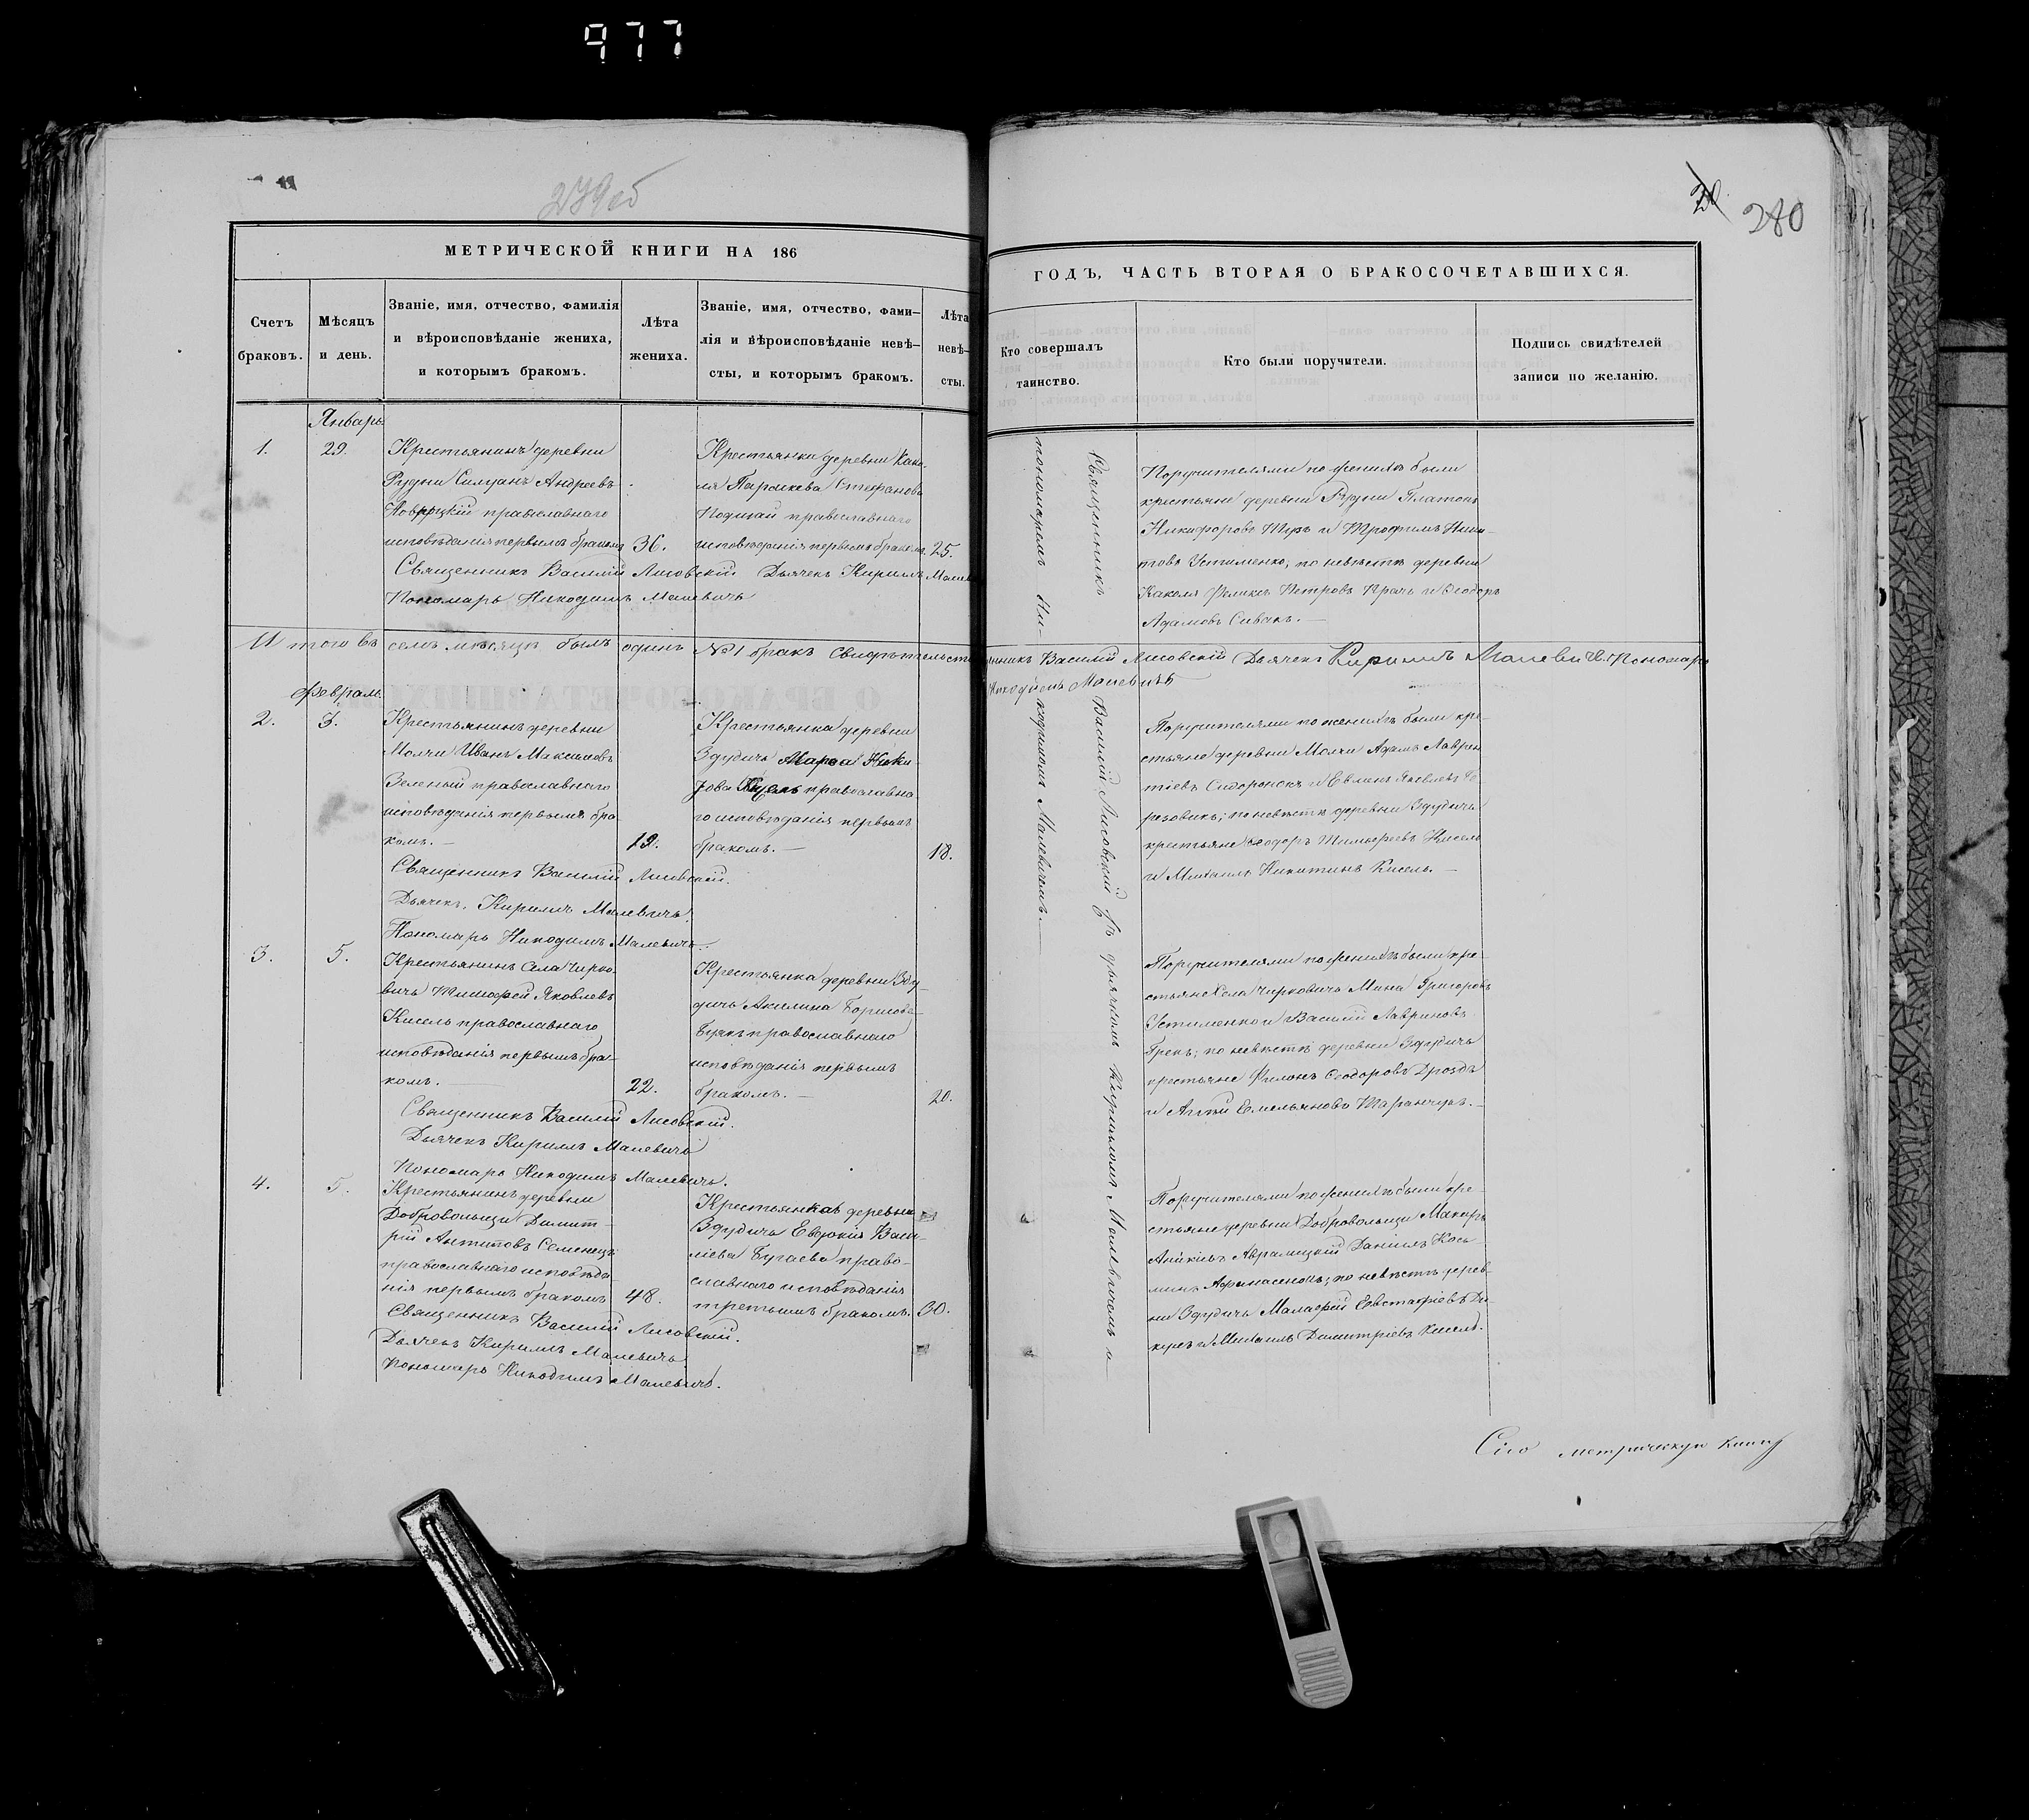 977
279об
20
280
МЕТРИЧЕСКОЙ КНИГИ НА 186
ГОДЪ, ЧАСТЬ ВТОРАЯ О БРАКОСОЧЕТАВШИХСЯ.
Счетъ
браковъ.
Мѣсяцъ
и день.
Званіе, имя, отчество, фамилія
и вѣроисповѣданіе жениха,
и которымъ бракомъ.
Лѣта
жениха.
Званіе, имя, отчество, фами-
лія и вѣроисповѣданіе невѣ-
сты, и которымъ бракомъ.
Лѣта
невѣ-
сты.
Кто совершалъ
таинство.
Кто были поручители.
Подпись свидѣтелей
записи по желанію.
Январь
1.
29.
Крестьянинъ деревни
Рудни Силуанъ Андреевъ
православнаго
исповѣданія первымъ бракомъ
36.
Крестьянка деревни Како-
ля Параскева Стефанова
православнаго
исповѣданія первымъ бракомъ.
25.
Священникъ Василій Лисовскій Дьячекъ Кириллъ
Пономарь Никодимъ Малевичъ
Поручителями по женихѣ были
крестьяне деревни Рудни Платонъ
Никифоровъ и Трофимъ Ники-
товъ Устименко; по невѣстѣ деревни
Каколя Феликсъ Петровъ и Ѳеодоръ
Адамовъ Сивакъ.
Итого въ семъ мѣсяцѣ былъ одинъ №1 бракъ
Василій Лисовскій Дьячекъ Кириллъ Малевичъ Пономарь
Никодимъ Малевичъ
Февраль
2.
3.
Крестьянинъ деревни
Молчи Иванъ Максимовъ
Зеленый православнаго
исповѣданія первымъ бра-
комъ.
19.
Крестьянка деревни
Здудичъ
православна-
го исповѣданія первымъ
бракомъ.
18.
Священникъ Василій Лисовскій.
Дьячекъ Кириллъ Малевичъ.
Пономарь Никодимъ Малевичъ.
Поручителями по женихѣ были кре-
стьяне деревни Молчи Адамъ Лаврен-
тіевъ и
по невѣстѣ деревни Здудичъ
крестьяне Ѳеодоръ Тимофеевъ Кисель
и Михаилъ Никитинъ Кисель.
3.
5.
Крестьянинъ Села Чирко-
вичъ Тимофей Яковлевъ
Кисель православнаго
исповѣданія первымъ бра-
комъ.
22.
Крестьянка деревни Зду-
дичъ Акилина Борисова
православнаго
исповѣданія первымъ
бракомъ.
20.
Священникъ Василій Лисовскій.
Дьячекъ Кириллъ Малевичъ
Пономарь Никодимъ Малевичъ.
Поручителями по женихѣ были кре-
стьяне Села Чирковичъ Мина Григоровъ
Устименко и Василій Лавриновъ
Грекъ; по невѣстѣ деревни Здудичъ
крестьяне Филонъ Ѳеодоровъ Дроздъ
и Емельяновъ
4.
5.
Крестьянинъ деревни
Добровольщи Димит-
рій Антиповъ Семенецъ
православнаго исповѣда-
нія первымъ бракомъ
48.
Крестьянка деревни
Здудичъ Евдокія Васи-
лiева Бугаева право-
славнаго исповѣданія
третьимъ бракомъ.
30.
Священникъ Василій Лисовскій.
Дьячекъ Кириллъ Малевичъ.
Пономарь Никодимъ Малевичъ.
Поручителями по женихѣ были кре-
стьяне деревни Добровольщи Макаръ
Даніилъ Кось-
минъ по невѣстѣ дерев-
ни Здудичъ Евстафіевъ
и Михаилъ Димитріевъ Кисель.
Священникъ Василій Лисовскій съ дьячкомъ Кирилломъ Малевичемъ и
пономаремъ Никодимомъ Малевичемъ.
Сію метрическую книгу